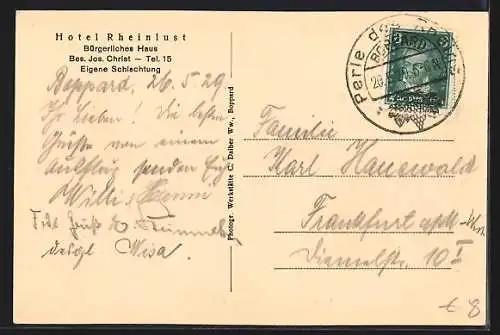 Hotel Rheinlust
Bürgerliches Haus
Bes. Jos. Christ — Tel. 15
Eigene Schlachtung
Boppard, 26. 5. 29.
Ihr Lieben! Die besten
Grüße von einem
Ausflug senden Euch
Willi
Wisa.
Photogr. Werkstätte C. Daiber Ww., Boppard
Perle des
BOPPARD
Familie
Karl Hauswald
Frankfurt a/M
Diemelstr. 10 II
€ 8